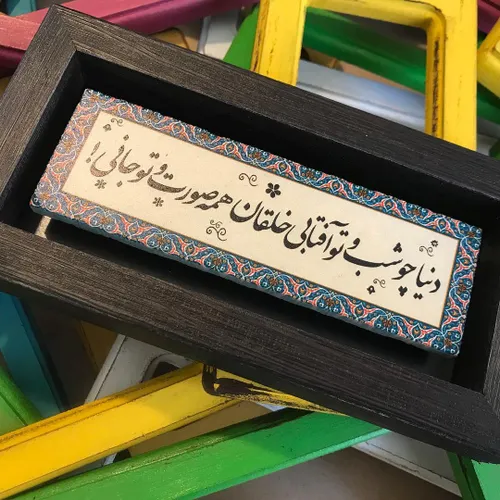 دنیا چو شب و تو آفتابی خلقان همه صورت و تو جانی !